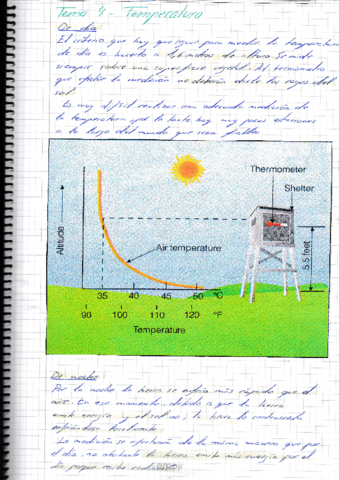 Tema 4 - Temperatura
De día
El criterio que hay que seguir para medir la temperatura
de día es hacerlo a 1,5 metros de altura. Se mide
siempre sobre una superficie vegetal. Al termómetro
que efectúe la medición no deberán darle los rayos del
sol.
Es muy difícil realizar una adecuada medición de
la temperatura por lo tanto hay muy pocas estaciones
a lo largo del mundo que sean fiables
Thermometer
Shelter
Altitude
Air temperature
5.5 feet
35 40 45 50 °C
90 100 110 120 °F
Temperature
De noche
Por la noche la tierra se enfría más rápido que el
aire. En ese momento, debido a que la tierra
emite energía y el sol no, la tierra lo contrarresta
enfriándose localmente.
La medición se efectuará de la misma manera que por
el día, no obstante la tierra emite más energía por el
día porque recibe